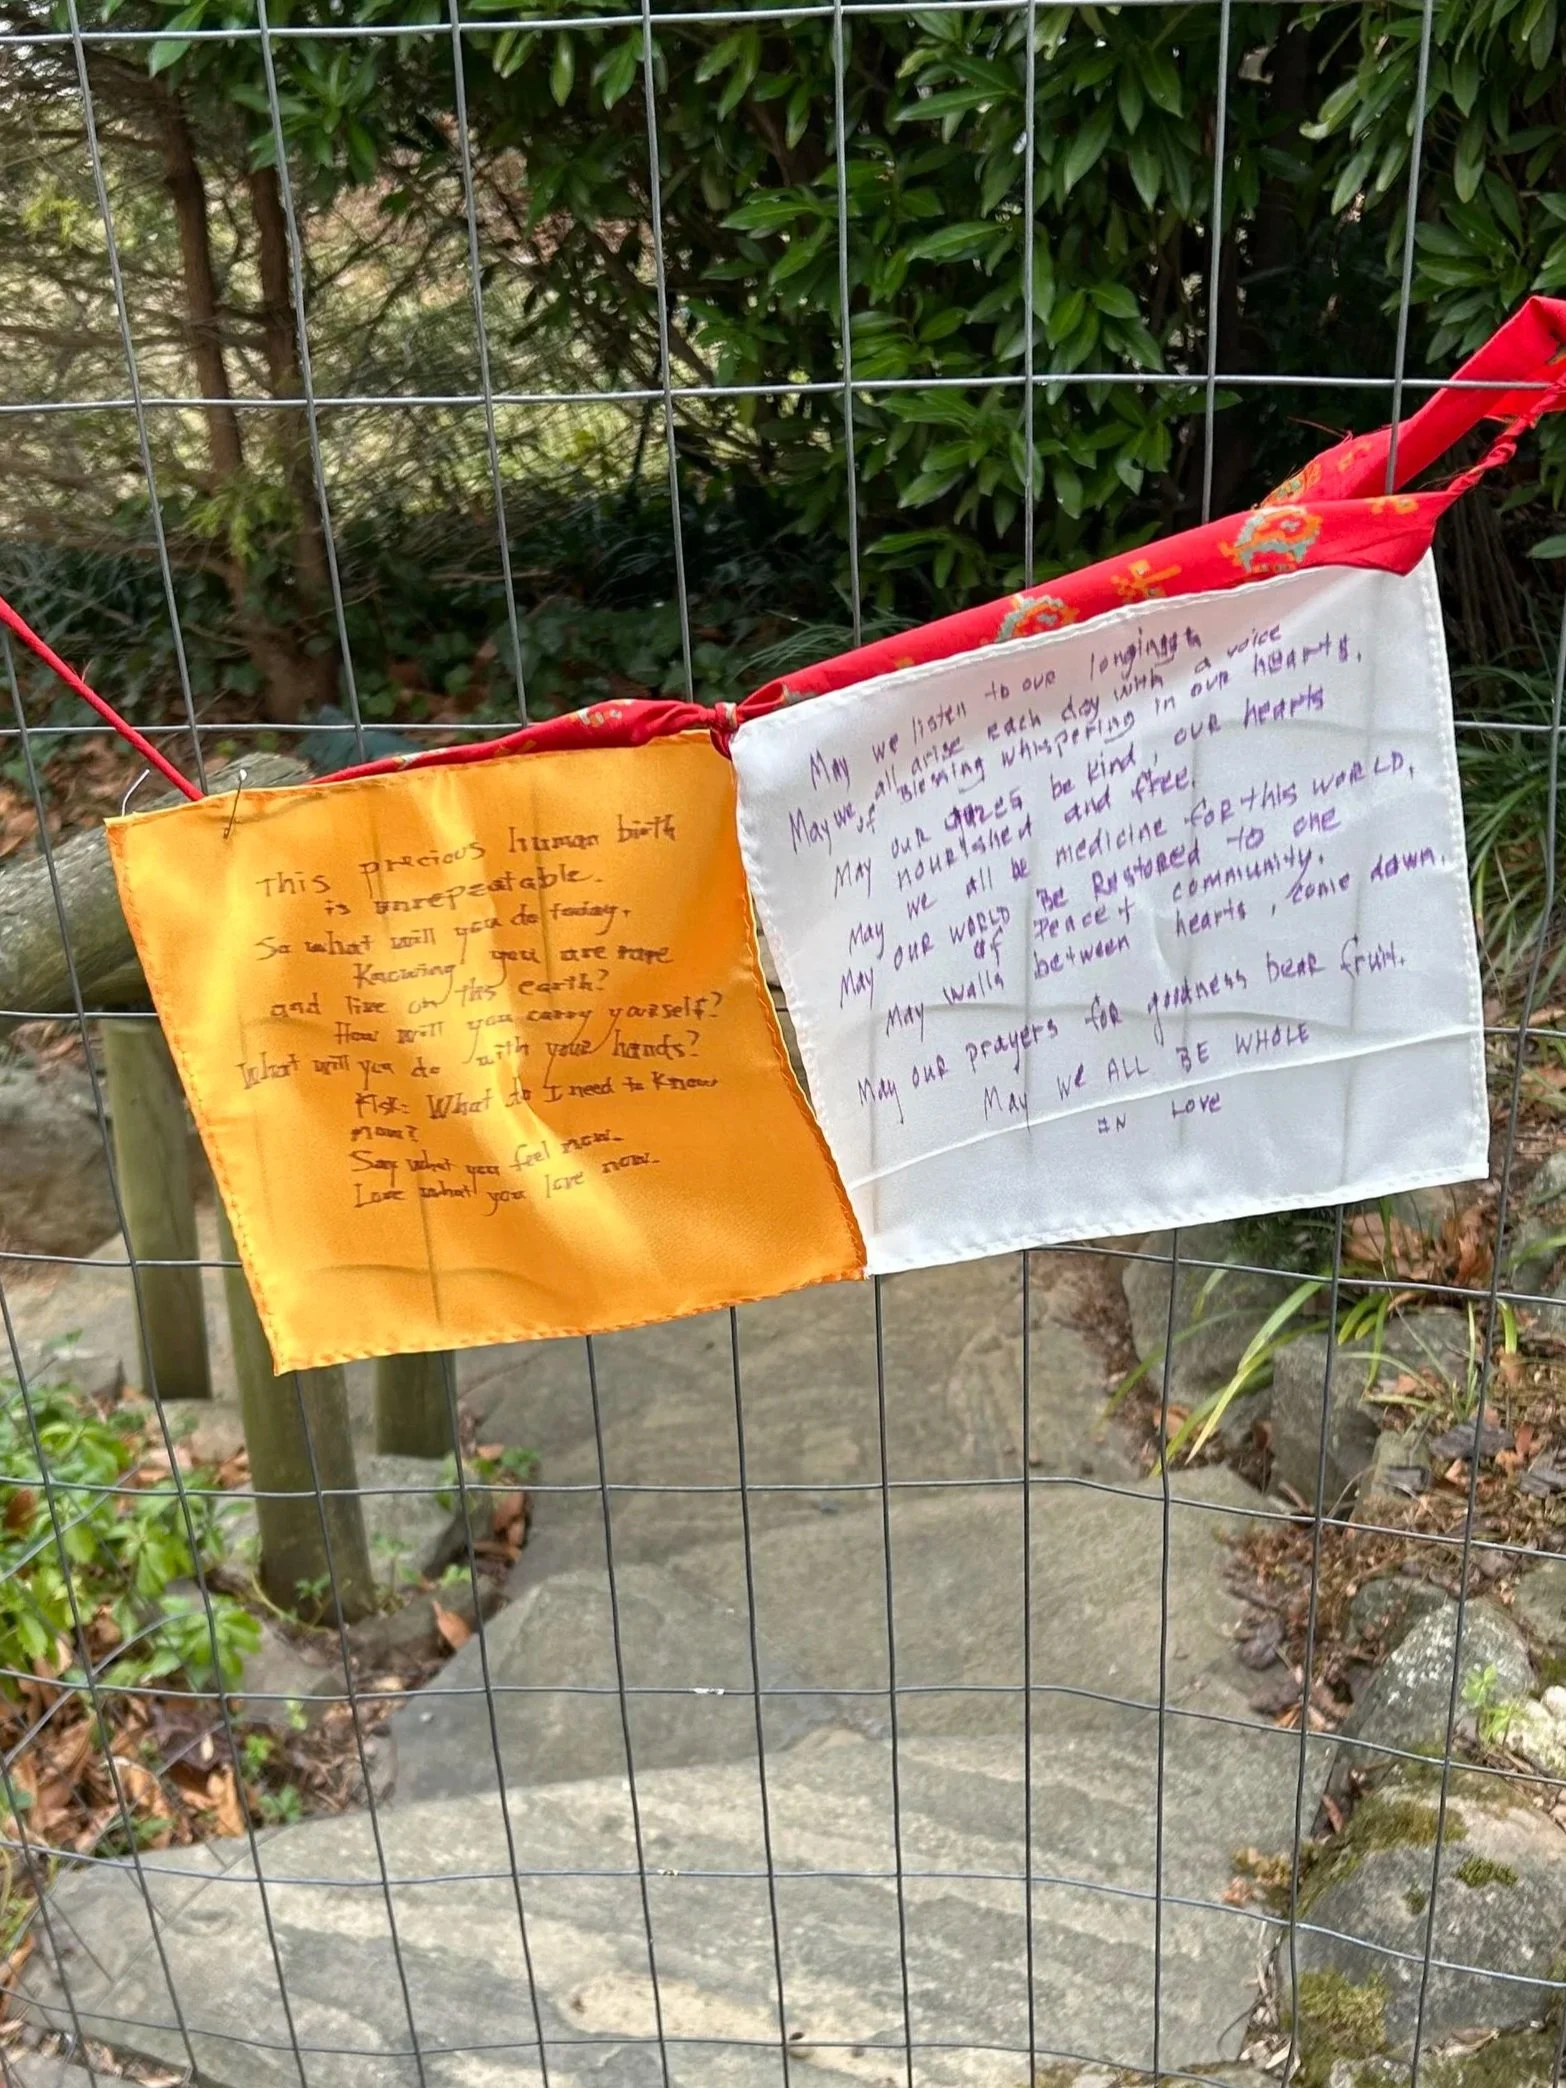 This precious human birth
is unrepeatable.
So what will you do today,
Knowing you are rare
and live on this earth?
How will you carry yourself?
What will you do with your hands?
Ask: What do I need to know
now?
Say what you feel now.
Love what you love now.
May we listen to our longings
May we all arise each day with a voice
of Blessing whispering in our hearts.
May our gazes be kind, our hearts
nourished and free.
May we all be medicine for this WORLD.
May our WORLD Be Restored to one
of Peace + community.
May walls between hearts, come down.
May our prayers for goodness bear fruit.
May We ALL BE WHOLE
IN Love